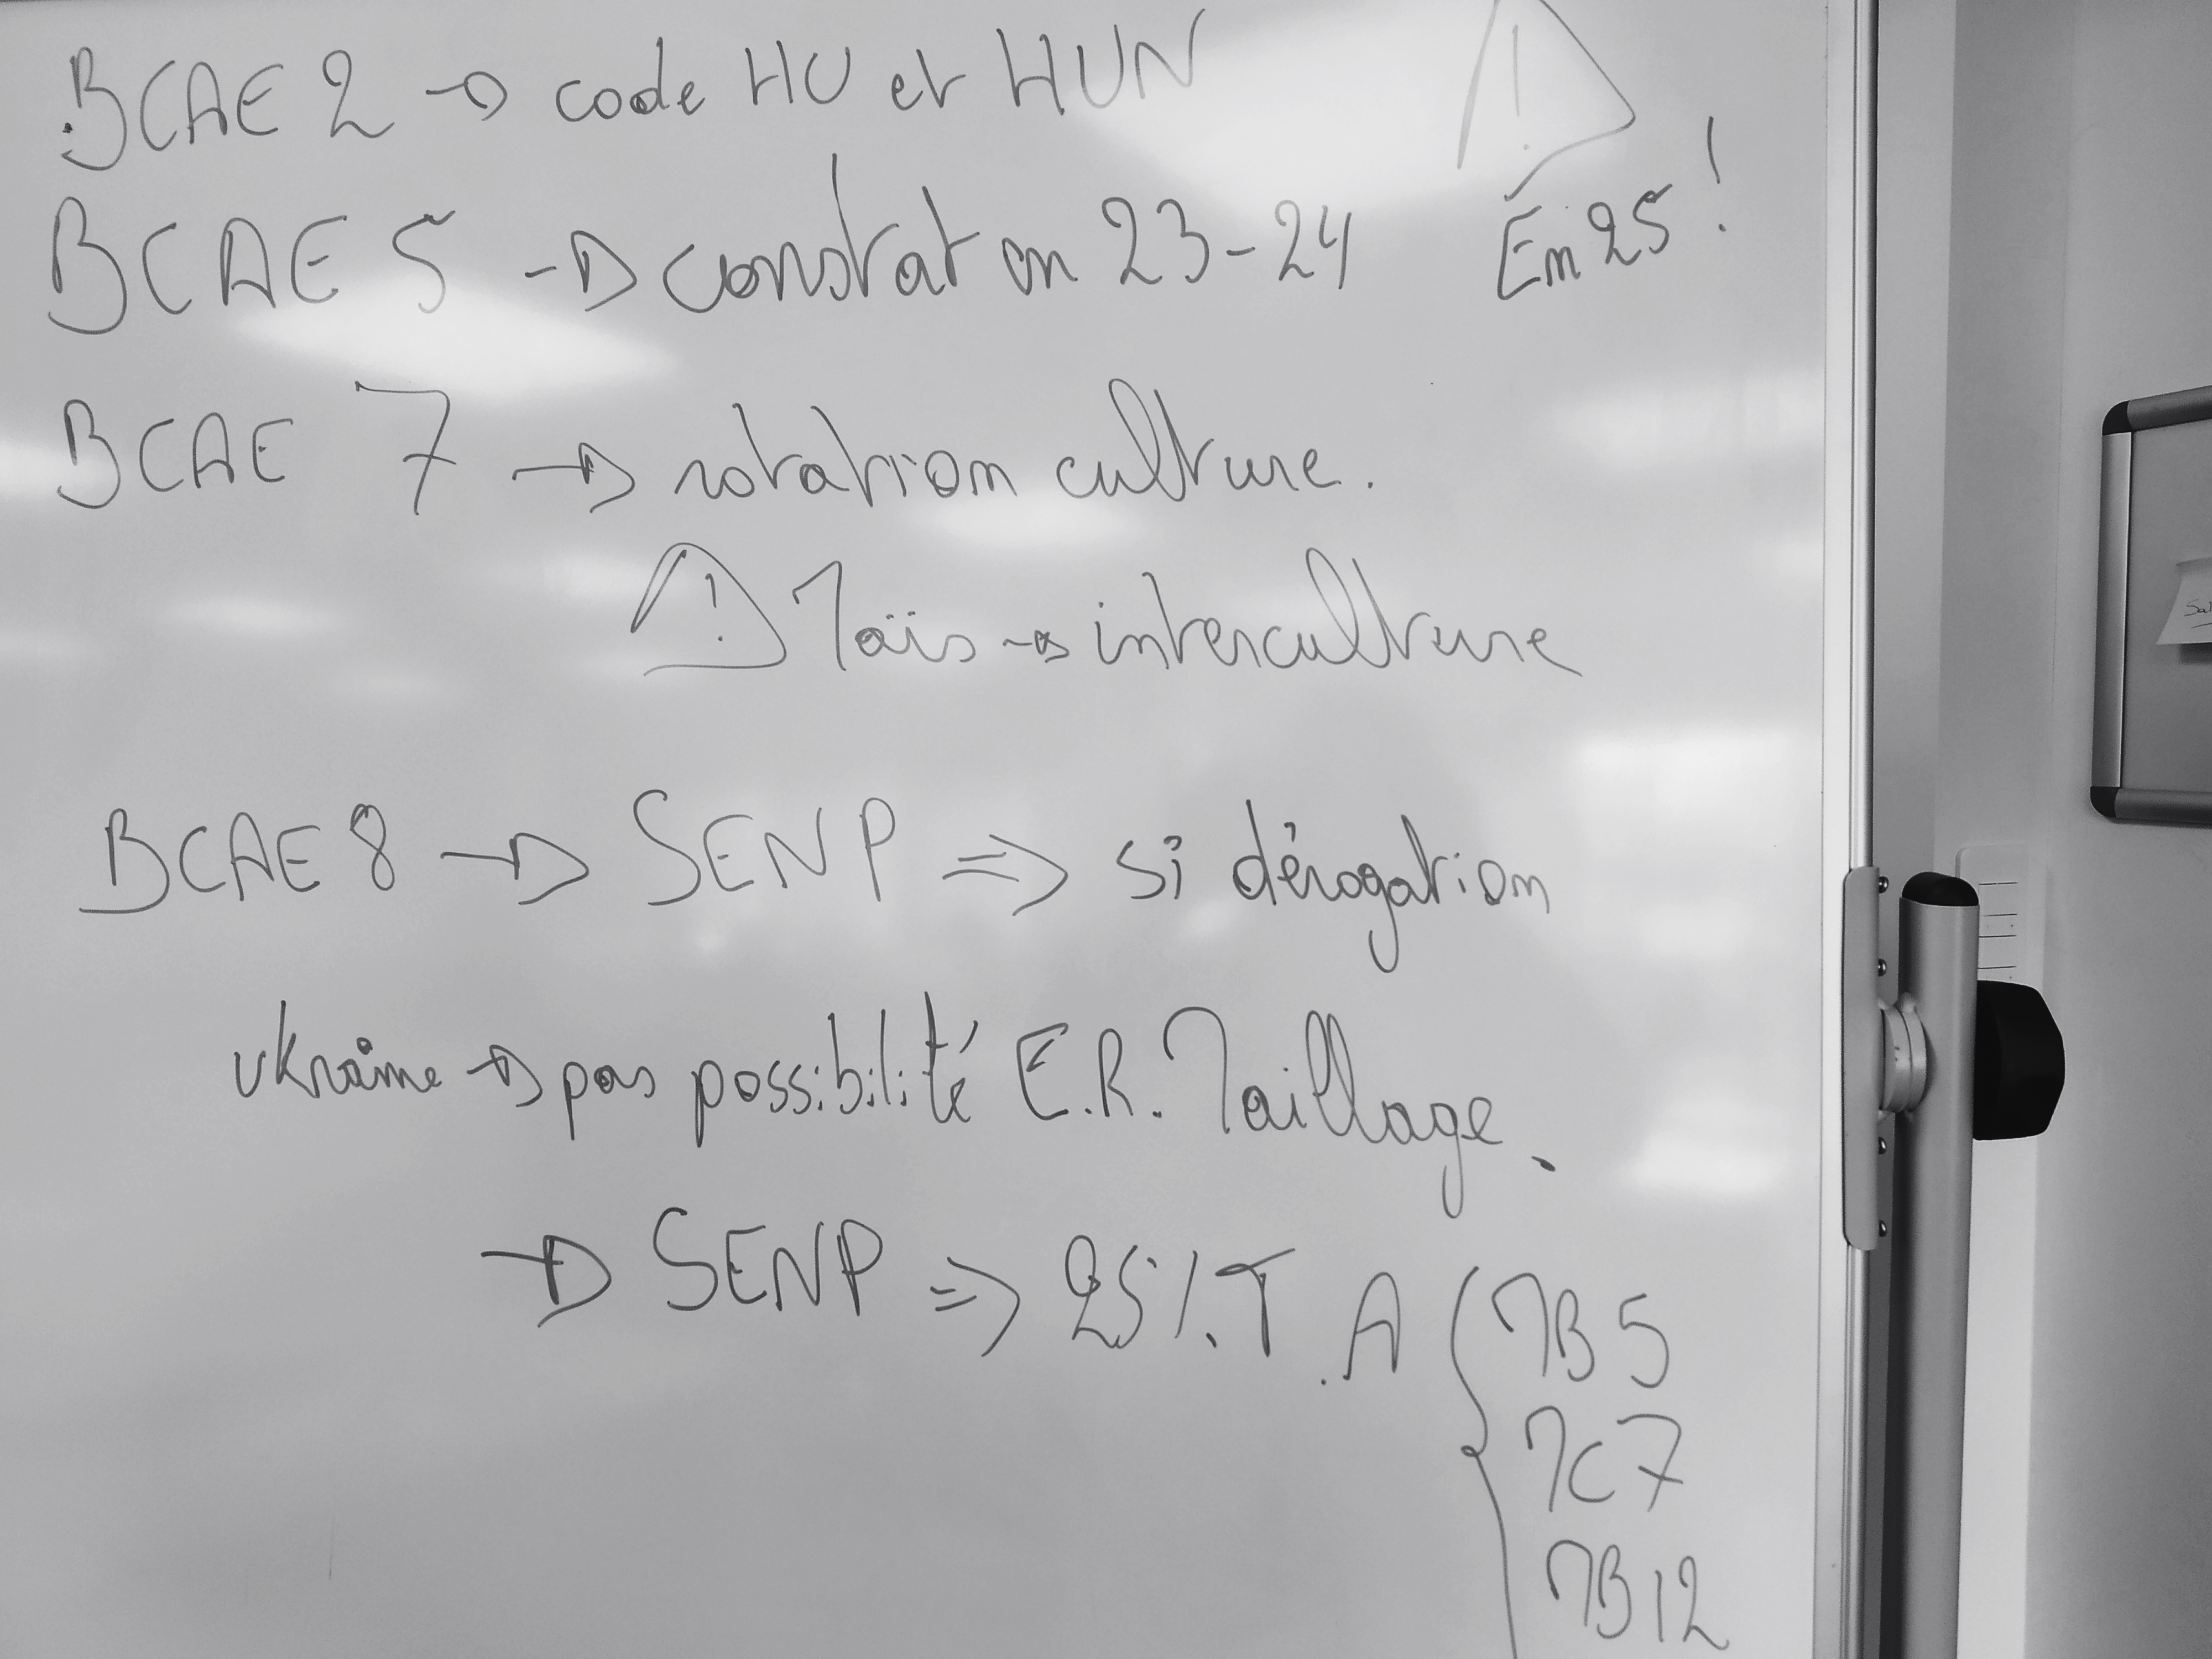 BCAE 2 → code HU et HUN
BCAE 5 → constrat en 23-24 ⚠ En 25 !
BCAE 7 → rotation culture.
⚠ Maïs → interculture
BCAE 8 → SENP ⇒ si dérogation
ukraine → pas possibilité E.R. Maillage.
→ SENP ⇒ 25% T.A { MB5
MC7
MB12